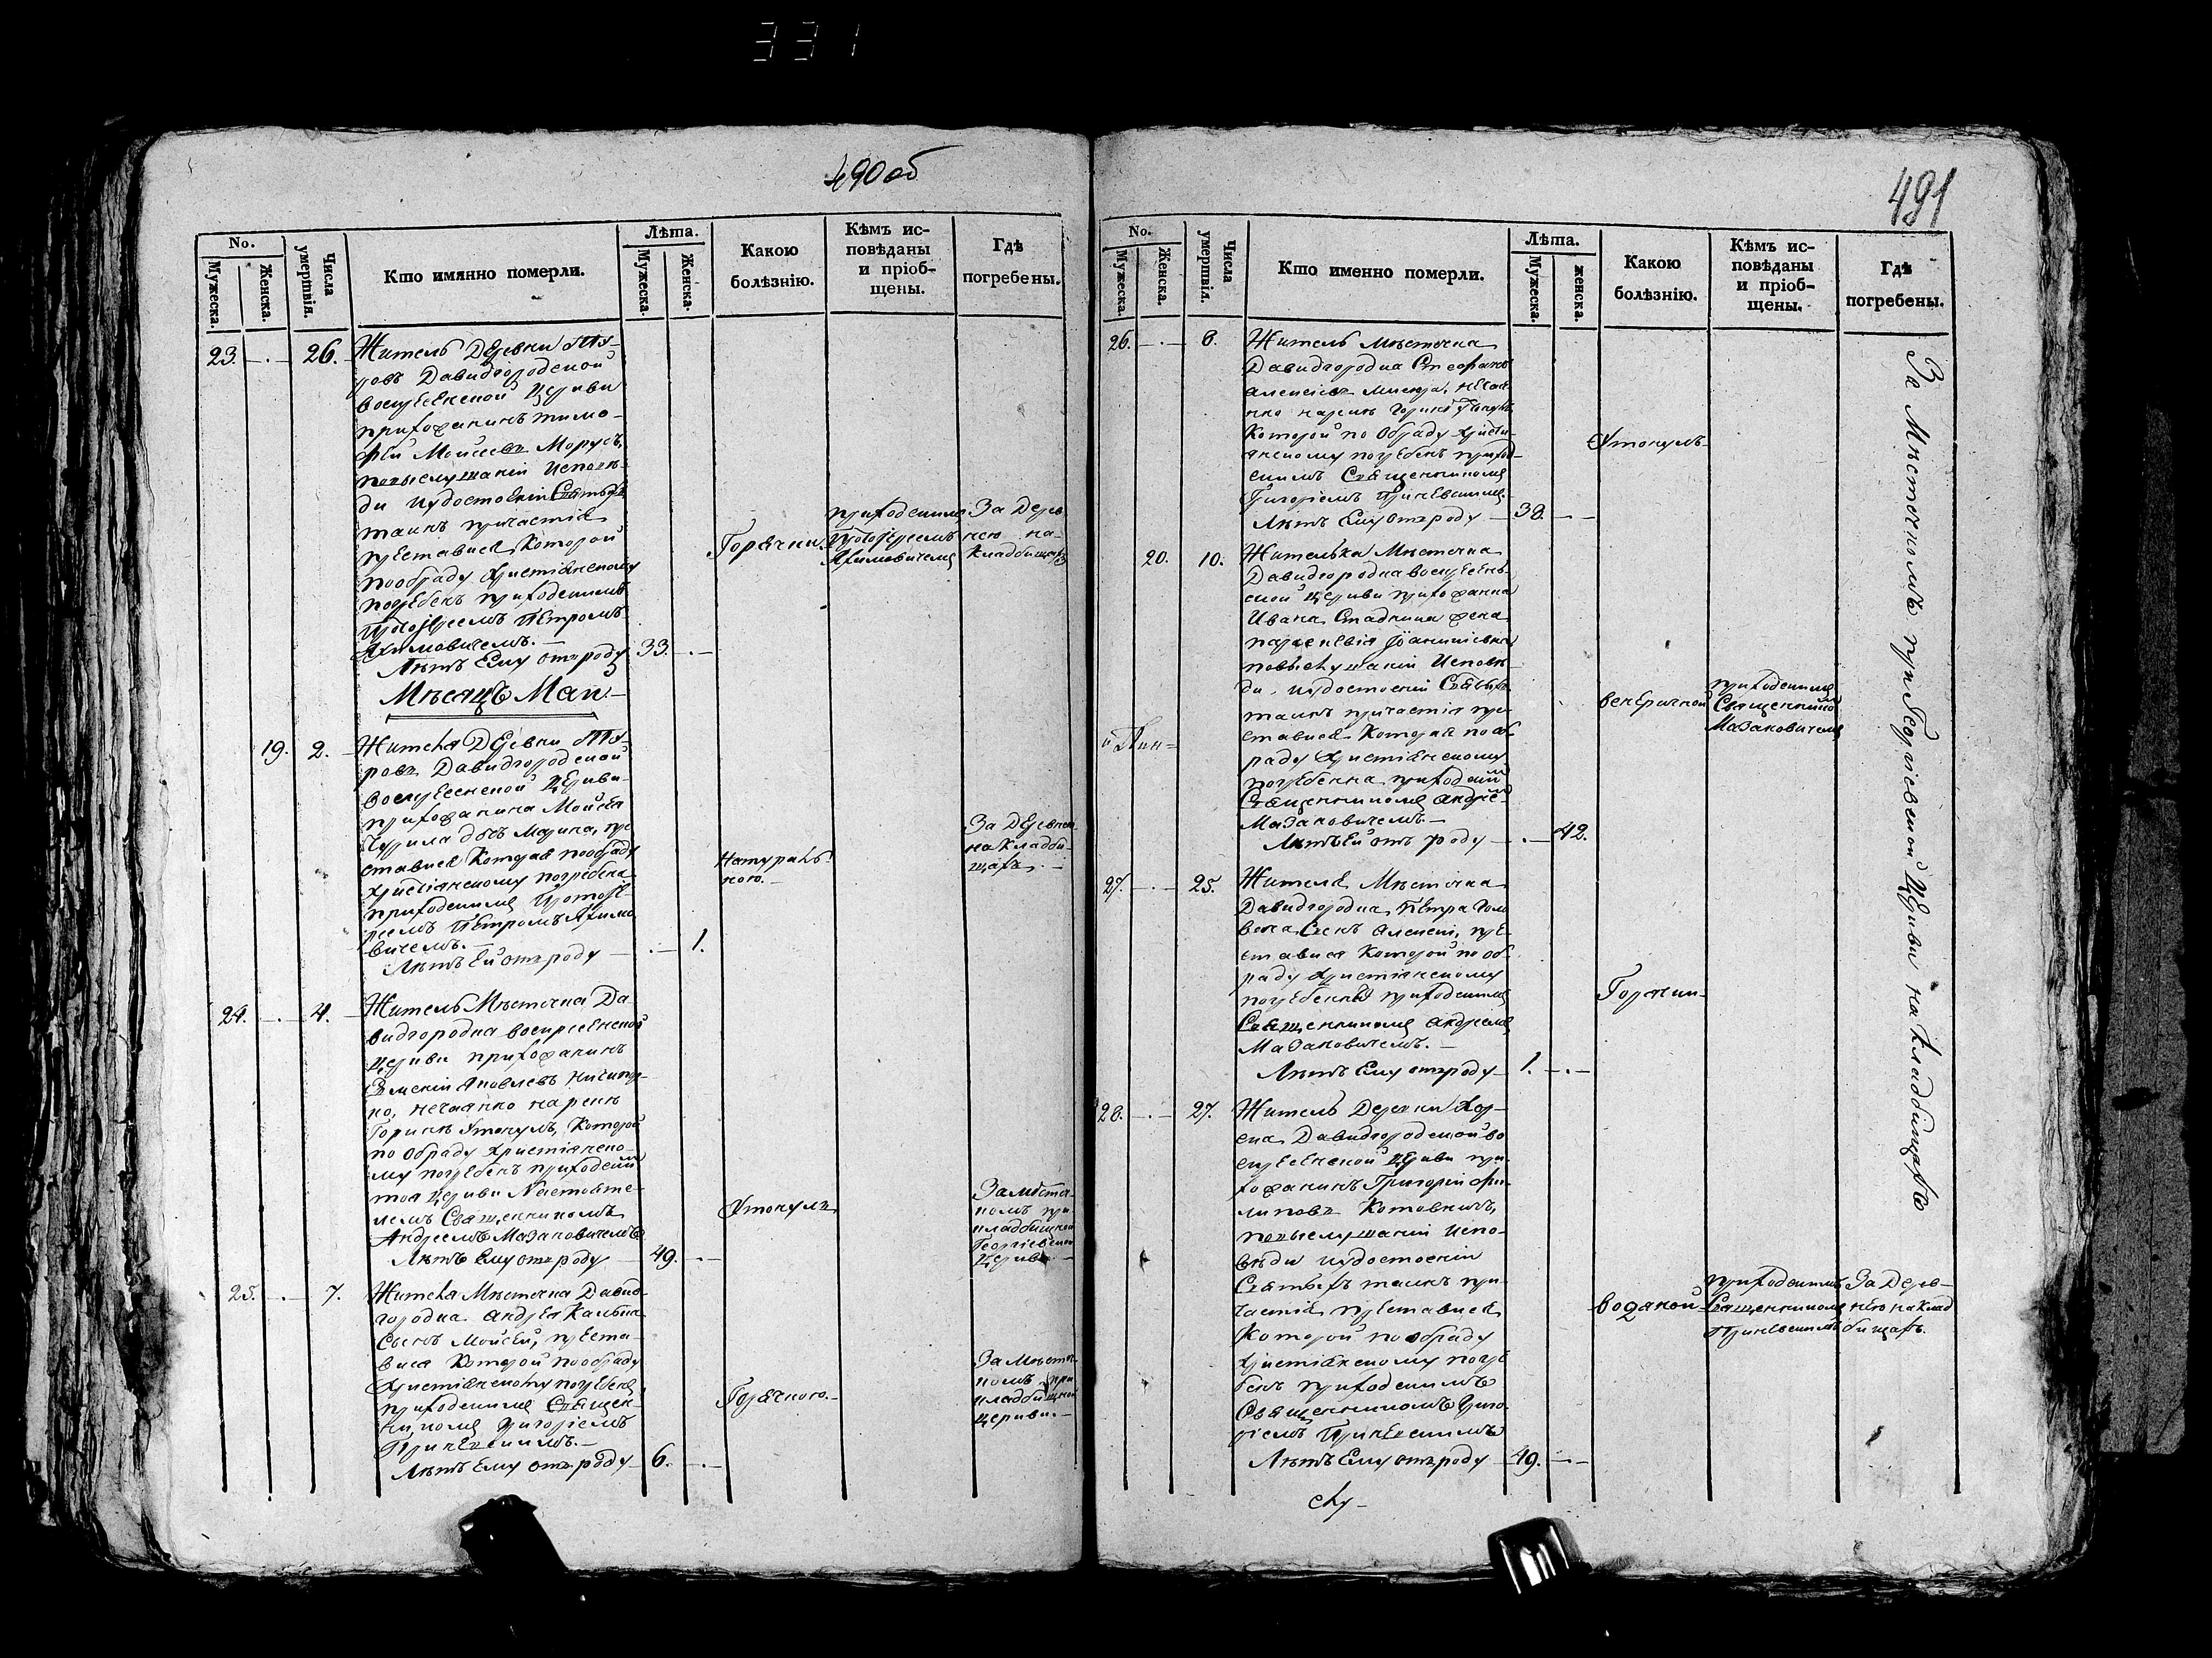 331
490 об
No.
Мужеска.
Женска.
Числа умертвія.
Кто имянно померли.
Лѣта.
Мужеска.
Женска.
Какою болѣзнію.
Кѣмъ исповѣданы и пріобщены.
Гдѣ погребены.
23.
26.
Житель Деревни
Давидгородской
Воскресенской Церкви
прихожанинъ Тимо-
фѣй Моисеевъ Морусъ,
повыслушаніи исповѣ-
ди иудостоеніи Святыхъ
таинъ причастія
преставися, Которой
пообряду Християнскому
погребенъ приходскимъ
Протоіереемъ Петромъ
Якимовичемъ.—
Лѣтъ Ему отъроду
33.
Горячки.
приходскимъ
Протоіереемъ
Якимовичемъ
За Дерев-
нею на-
Кладбищахъ
Мѣсяцъ Маи
19.
2.
Жителя Деревни
ровъ Давидгородской
Воскресенской Церкви
прихожанина Моисея
Чурила дочь Марина, пре-
ставися Которая пообряду
Христіянскому погребена
приходскимъ Протоіе-
реемъ Петромъ Якимо-
вичемъ.—
Лѣтъ Ей отъроду
1.
Натураль-
ною.—
За Деревнею
на Кладби-
щахъ.—
24.
4.
Житель Мѣстечка Да-
видгородка воскресенской
Церкви прихожанинъ
Яковлевъ Ничипор-
ко, нечаянно нарекѣ
Горинѣ Утонулъ, Которой
по Обряду Христіянско-
му погребенъ приходскимъ
тоя Церкви Настояте-
лемъ Священникомъ
Андреемъ Мазановичемъ
Лѣтъ Ему отъроду
49.
Утонулъ
За мѣстеч-
комъ при
кладбищной
Георгіевской
Церкви.—
25.
7.
Жителя Мѣстечка Давид-
городка Андрея
Сынъ Моисей, преста-
вися Которой пообряду
Христіянскому погребенъ
приходскимъ Священ-
никомъ Григоріемъ
Лѣтъ Ему отъроду
6.
Горячкою.—
За Мѣстеч-
комъ при
кладбищной
церкви.—
491
No.
Мужеска.
Женска.
Числа умертвія.
Кто именно померли.
Лѣта.
Мужеска.
женска.
Какою болѣзнію.
Кѣмъ исповѣданы и пріобщены.
Гдѣ погребены.
26.
8.
Житель Мѣстечка
Давидгородка Стефанъ
Алексіевъ нечая-
нно нарекѣ Горинѣ
Которой по Обряду Христи-
янскому погребенъ приход-
скимъ Священникомъ
Григоріемъ
Лѣтъ Ему отъроду
38.
Утонулъ
20.
10.
Жителька Мѣстечка
Давидгородка воскресен-
ской Церкви прихожанка
Ивана Стадника жена
повыслушаніи Исповѣ-
ди, иудостоеніи Святыхъ
таинъ причастія пре-
ставися Которая по об-
ряду Христіянскому
погребенна приходскимъ
Священникомъ Андреемъ
Мазановичемъ.—
Лѣтъ Ей отъ роду
42.
венеричной
приходскимъ
Священникомъ
Мазановичемъ
27.
25.
Жителя Мѣстечка
Давидгородка Петра Голо
Сынъ Алексій, пре-
ставися Которой по об-
ряду Христіянскому
погребенный приходскимъ
Священникомъ Андреемъ
Мазановичемъ.—
Лѣтъ Ему отъроду
1.
Горячки
28.
27.
Житель Деревни Хор-
ска Давидгородской во
скресенской Церкви при-
хожанинъ Григорій Фи-
липовъ Котовничъ,
повыслушаніи Испо-
вѣди иудостоеніи
Святыхъ таинъ при-
частія преставися
Которой пообряду
Христіянскому погре
бенъ приходскимъ
Священникомъ Григо-
ріемъ
Лѣтъ Ему отъроду
49.
водяной
приходскимъ
Священникомъ
За Дерев-
нею на Клад
бищахъ.
За Мѣстечкомъ при Георгіевской Церкви на Кладбищахъ